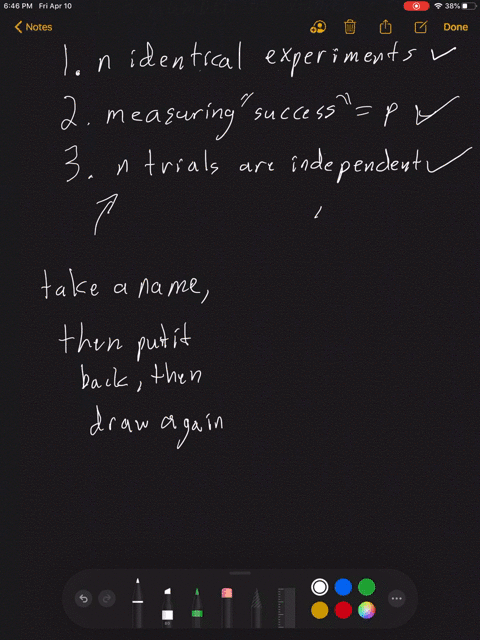 6:46 PM Fri Apr 10
38%
Notes
Done
1. n identical experiments ✓
2. measuring "success" = p ✓
3. n trials are independent ✓
take a name,
then put it
back, then
draw again